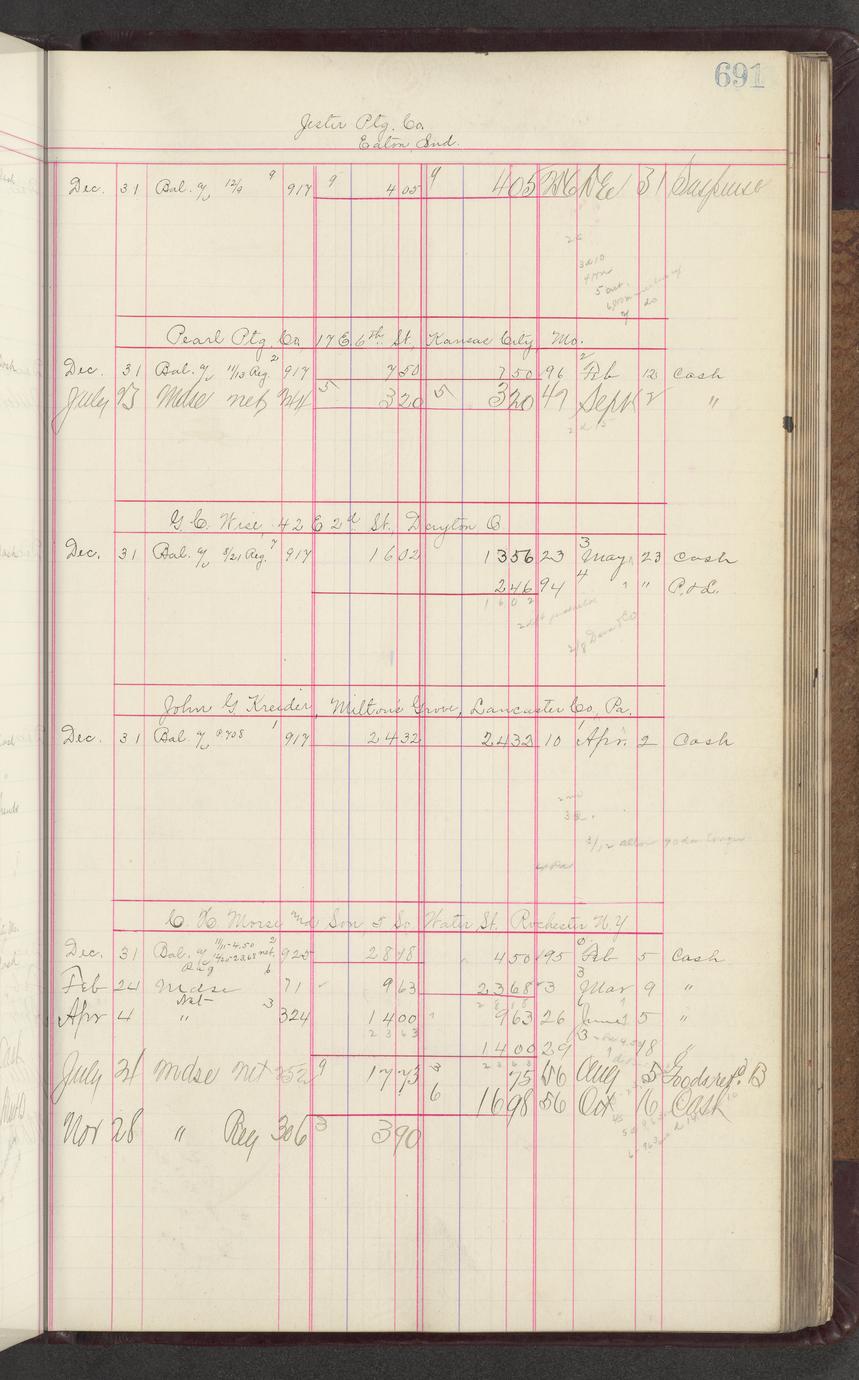 691
Jester Ptg. Co.
Eaton, Ind.
Dec. 31 Bal. 12/9 9 917 9 4 05 9 4 05 Dec 31 Suspense
Pearl Ptg. Co., 17 E. 6th St., Kansas City, Mo.
Dec. 31 Bal. 11/13 Reg. 2 917 7 50 7 50 96 2 Feb 12 Cash
July 23 Mdse net 244 5 3 20 5 3 20 47 Sept 2 "
G. C. Wise, 42 E 2d St. Dayton O
Dec. 31 Bal. 8/21 Reg. 7 917 16 02 13 56 23 3 May 23 Cash
2 46 94 4 " " P. & L.
16 02
John G. Kreider, Milton's Grove, Lancaster Co., Pa.
Dec. 31 Bal. 1 917 24 32 24 32 10 1 Apr. 2 Cash
3/12 allow 90 da longer
C. H. Morse and Son 5 So Water St. Rochester N.Y
Dec. 31 Bal. 11/11-4.50 2 925 28 18 4 50 195 Feb 5 Cash
Reg 6
Feb 24 Mdse 71 9 63 23 68 3 3 Mar 9 "
28 18
Apr 4 Net " 3 324 14 00 9 63 26 June 5 "
23 63
14 00 29 3 18 "
23 63
July 21 Mdse Net 252 9 17 73 3 75 56 Aug 5 Goods ret'd. B
6 16 98 56 Oct 16 Cash
Nov 28 " Reg 306 3 3 90